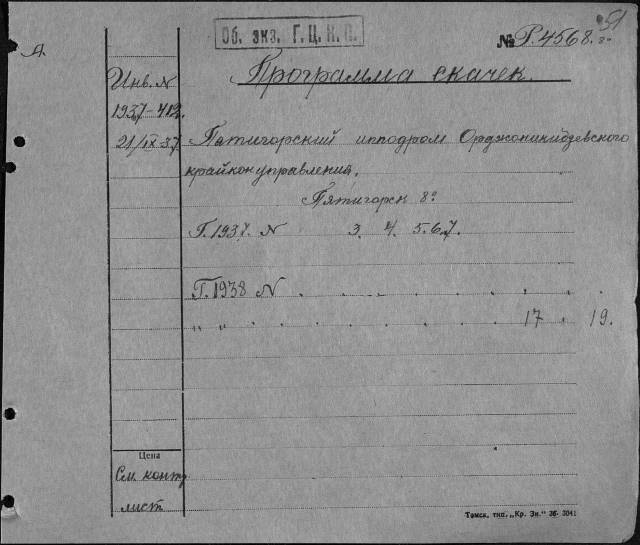 Об. экз. Г.Ц.К.П.
№ Р.4568.
51
Программа скачек.
Инв. N
1937-412.
21/IX-37
Пятигорский ипподром Орджоникидзевского
крайконуправления.
Пятигорск 8º
Г. 1937. N 3. 4. 5. 6. 7.
Г. 1938 N . . . . . . . . . .
" " . . . . . . . . . 17 . 19.
Цена
См. контр
лист
Томск, тип. „Кр. Зн." 36- 3041